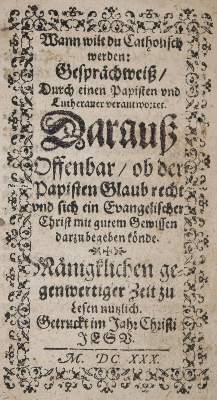 Wann wilt du Catholisch
werden:
Gesprächweiß/
Durch einen Papisten vnd
Lutheraner verantwortet.
Darauß
Offenbar/ ob der
Papisten Glaub recht
vnd sich ein Evangelischer
Christ mit gutem Gewissen
darzu begeben könde.
Mäniglichen ge-
genwertiger Zeit zu
lesen nutzlich.
Getruckt im Jahr Christi
JESV.
M. DC XXX.